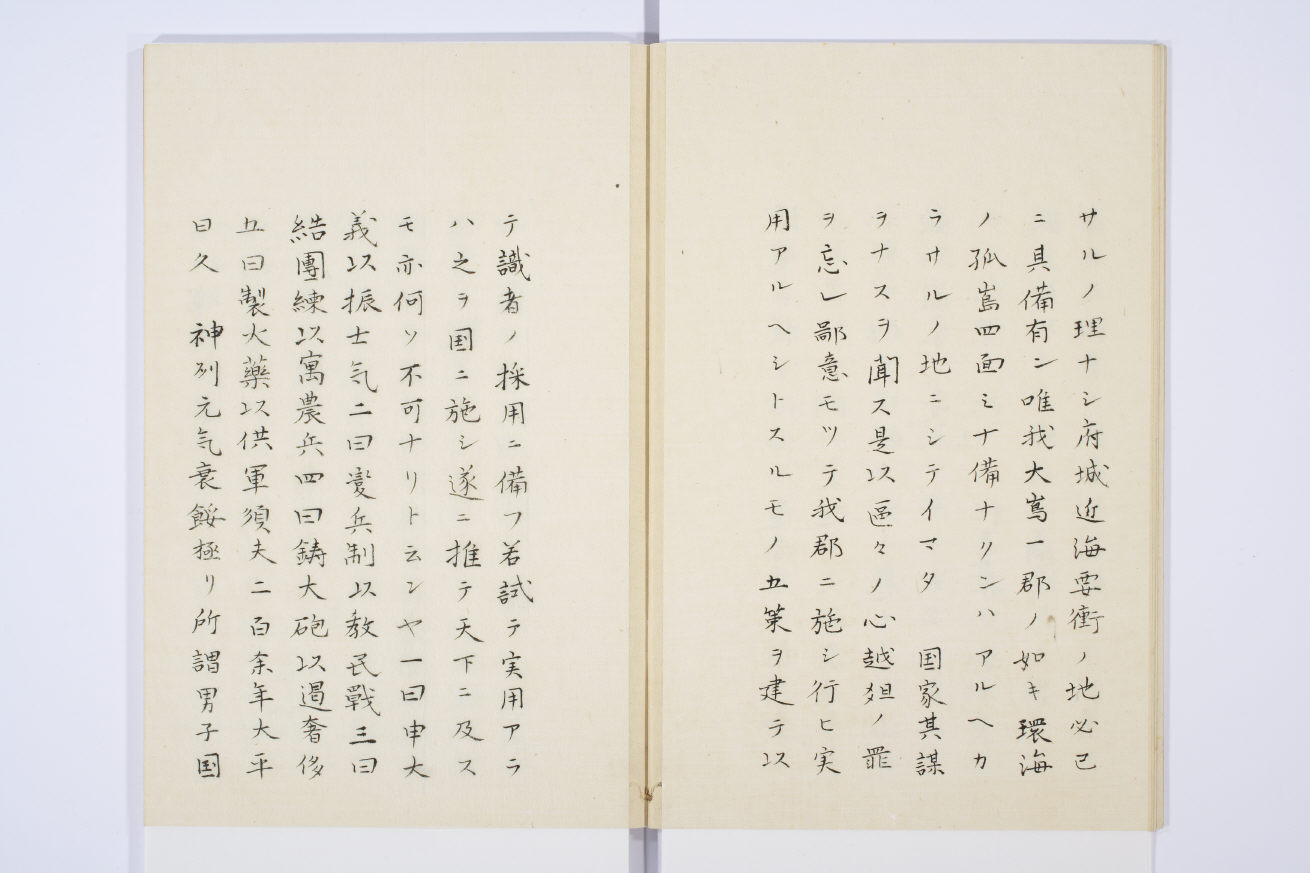 サルノ理ナシ府城近海要衝ノ地必已
ニ具備有ン唯我大嶌一郡ノ如キ環海
ノ孤嶌四面ミナ備ナクンハアルヘカ
ラサルノ地ニシテイマタ　国家其謀
ヲナスヲ聞ス是以區々ノ心越爼ノ罪
ヲ忘レ鄙意モツテ我郡ニ施シ行ヒ実
用アルヘシトスルモノ五策ヲ建テ以
テ識者ノ採用ニ備フ若試テ実用アラ
ハ之ヲ国ニ施シ遂ニ推テ天下ニ及ス
モ亦何ソ不可ナリト云ンヤ一曰申大
義以振士気二曰変兵制以教民戰三曰
結團練以寓農兵四曰鋳大砲以遏奢侈
五曰製火藥以供軍須夫二百余年大平
日久　神州元気衰餒極リ所謂男子国